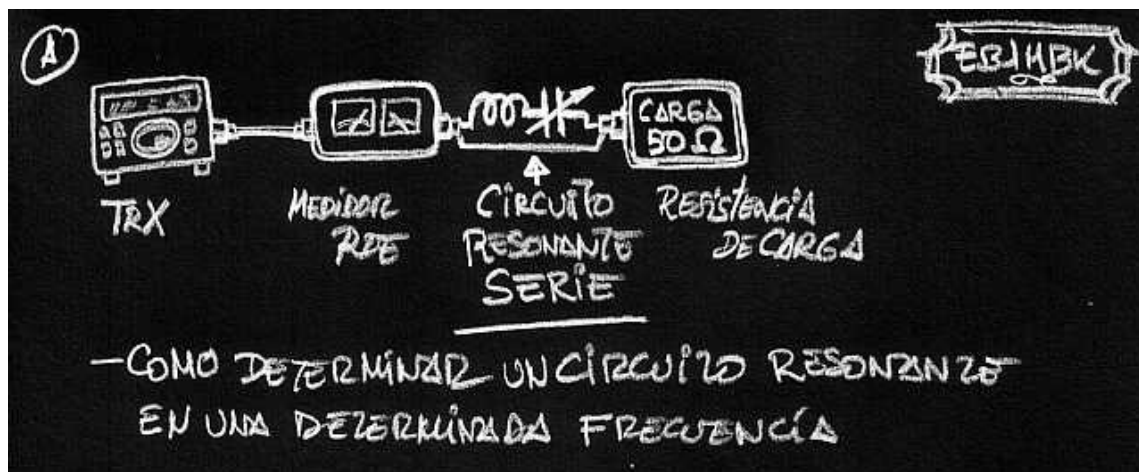 A
EB1HBK
CARGA
50 Ω
TRX
MEDIDOR
ROE
CIRCUITO
RESONANTE
SERIE
RESISTENCIA
DE CARGA
-COMO DETERMINAR UN CIRCUITO RESONANTE
EN UNA DETERMINADA FRECUENCÍA